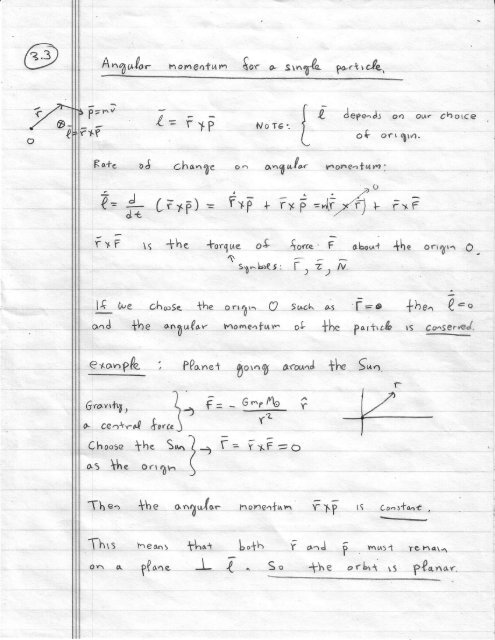 3.3
Angular momentum for a single particle.
r̄
p̄=mv̄
⊗
l̄=r̄×p̄
O
l̄ = r̄×p̄
NOTE: { l̄ depends on our choice
of origin.
Rate of change on angular momentum:
l̄̇ = d/dt (r̄×p̄) = r̄̇×p̄ + r̄×p̄̇ = m(r̄̇ × r̄̇) + r̄×F̄
0
r̄×F̄ is the torque of force F̄ about the origin O.
↑ symbols: Γ̄, τ̄, N̄
If we choose the origin O such as Γ̄=0 then l̄̇=0
and the angular momentum of the particle is conserved.
example : Planet going around the Sun
Gravity,
a central force } → F̄ = - G m_p M_⊙ / r² r̂
r
Choose the Sun
as the origin } → Γ̄ = r̄×F̄ = 0
Then the angular momentum r̄×p̄ is constant.
This means that both r̄ and p̄ must remain
on a plane ⊥ l̄. So the orbit is planar.